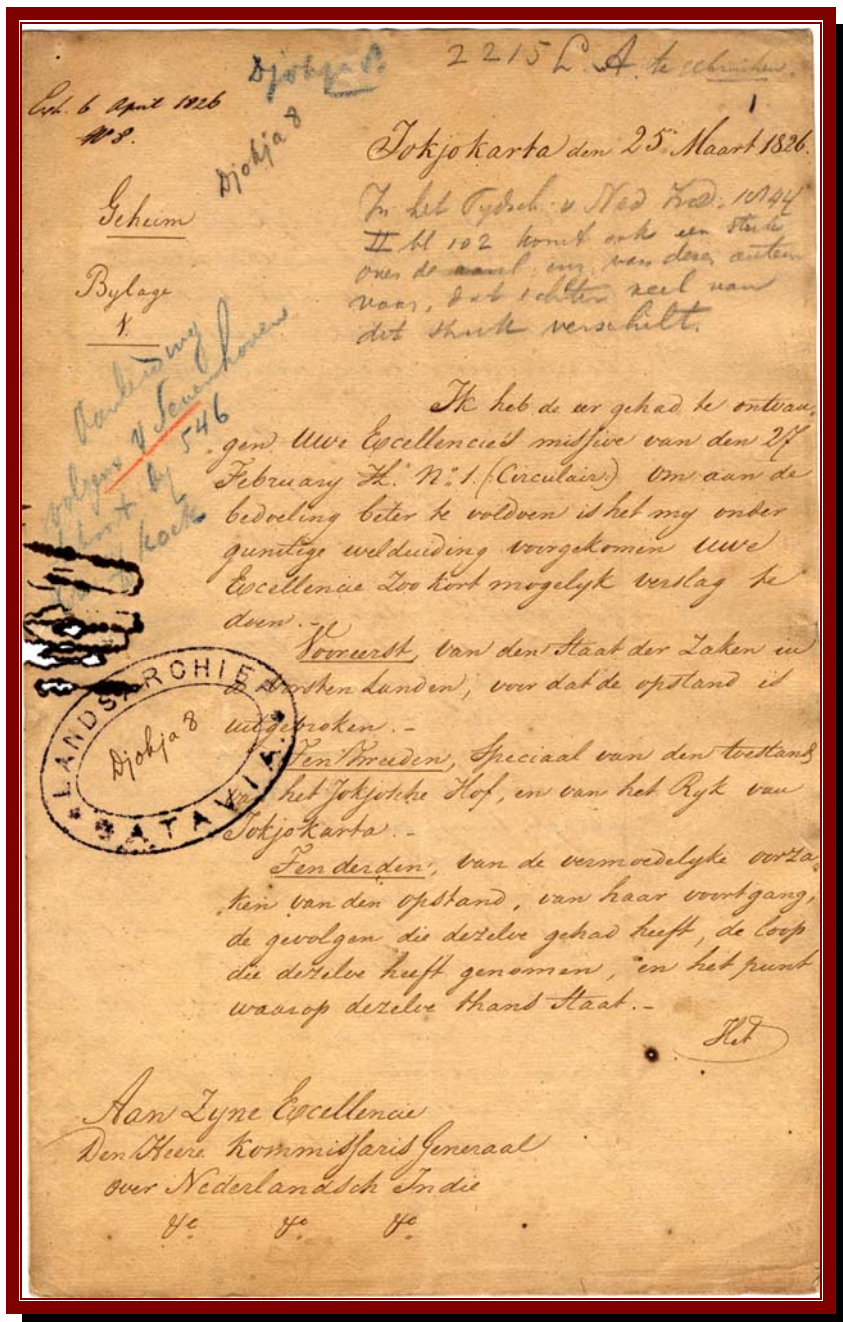 Djohja 8.
2215 L. A. te
Exh. 6 April 1826
N° 8.
1.
Djohja 8
Jokjokarta den 25 Maart 1826.
Geheim
In het Tydsch. v Ned Ind. 1844
II bl 102 komt ook een stuk
over de van dezen auteur
voor, dat echter veel van
dit stuk verschilt.
Bylage
1.
Aanleiding
volgens v Sevenhoven
546
Kock
Ik heb de eer gehad te ontvan-
gen Uwe Excellencie's missive van den 27
February Jl. N° 1. (Circulair.) Om aan de
bedoeling beter te voldoen is het my onder
gunstige welduiding voorgekomen Uwe
Excellencie Zoo kort mogelyk verslag te
doen.-
Vooreerst, van den Staat der Zaken in
de Vorsten Landen, voor dat de opstand is
uitgebroken.-
Ten Tweeden, Speciaal van den toestand
van het Jokjosche Hof, en van het Ryk van
Jokjokarta.-
Ten derden, van de vermoedelyke oorza-
ken van den opstand, van haar voortgang,
de gevolgen die dezelve gehad heeft, de loop
die dezelve heeft genomen, en het punt
waarop dezelve thans Staat.-
Het
LANDSARCHIEF
Djohja 8
BATAVIA
Aan Zyne Excellencie
Den Heere Kommissaris Generaal
over Nederlandsch Indie
&c &c &c